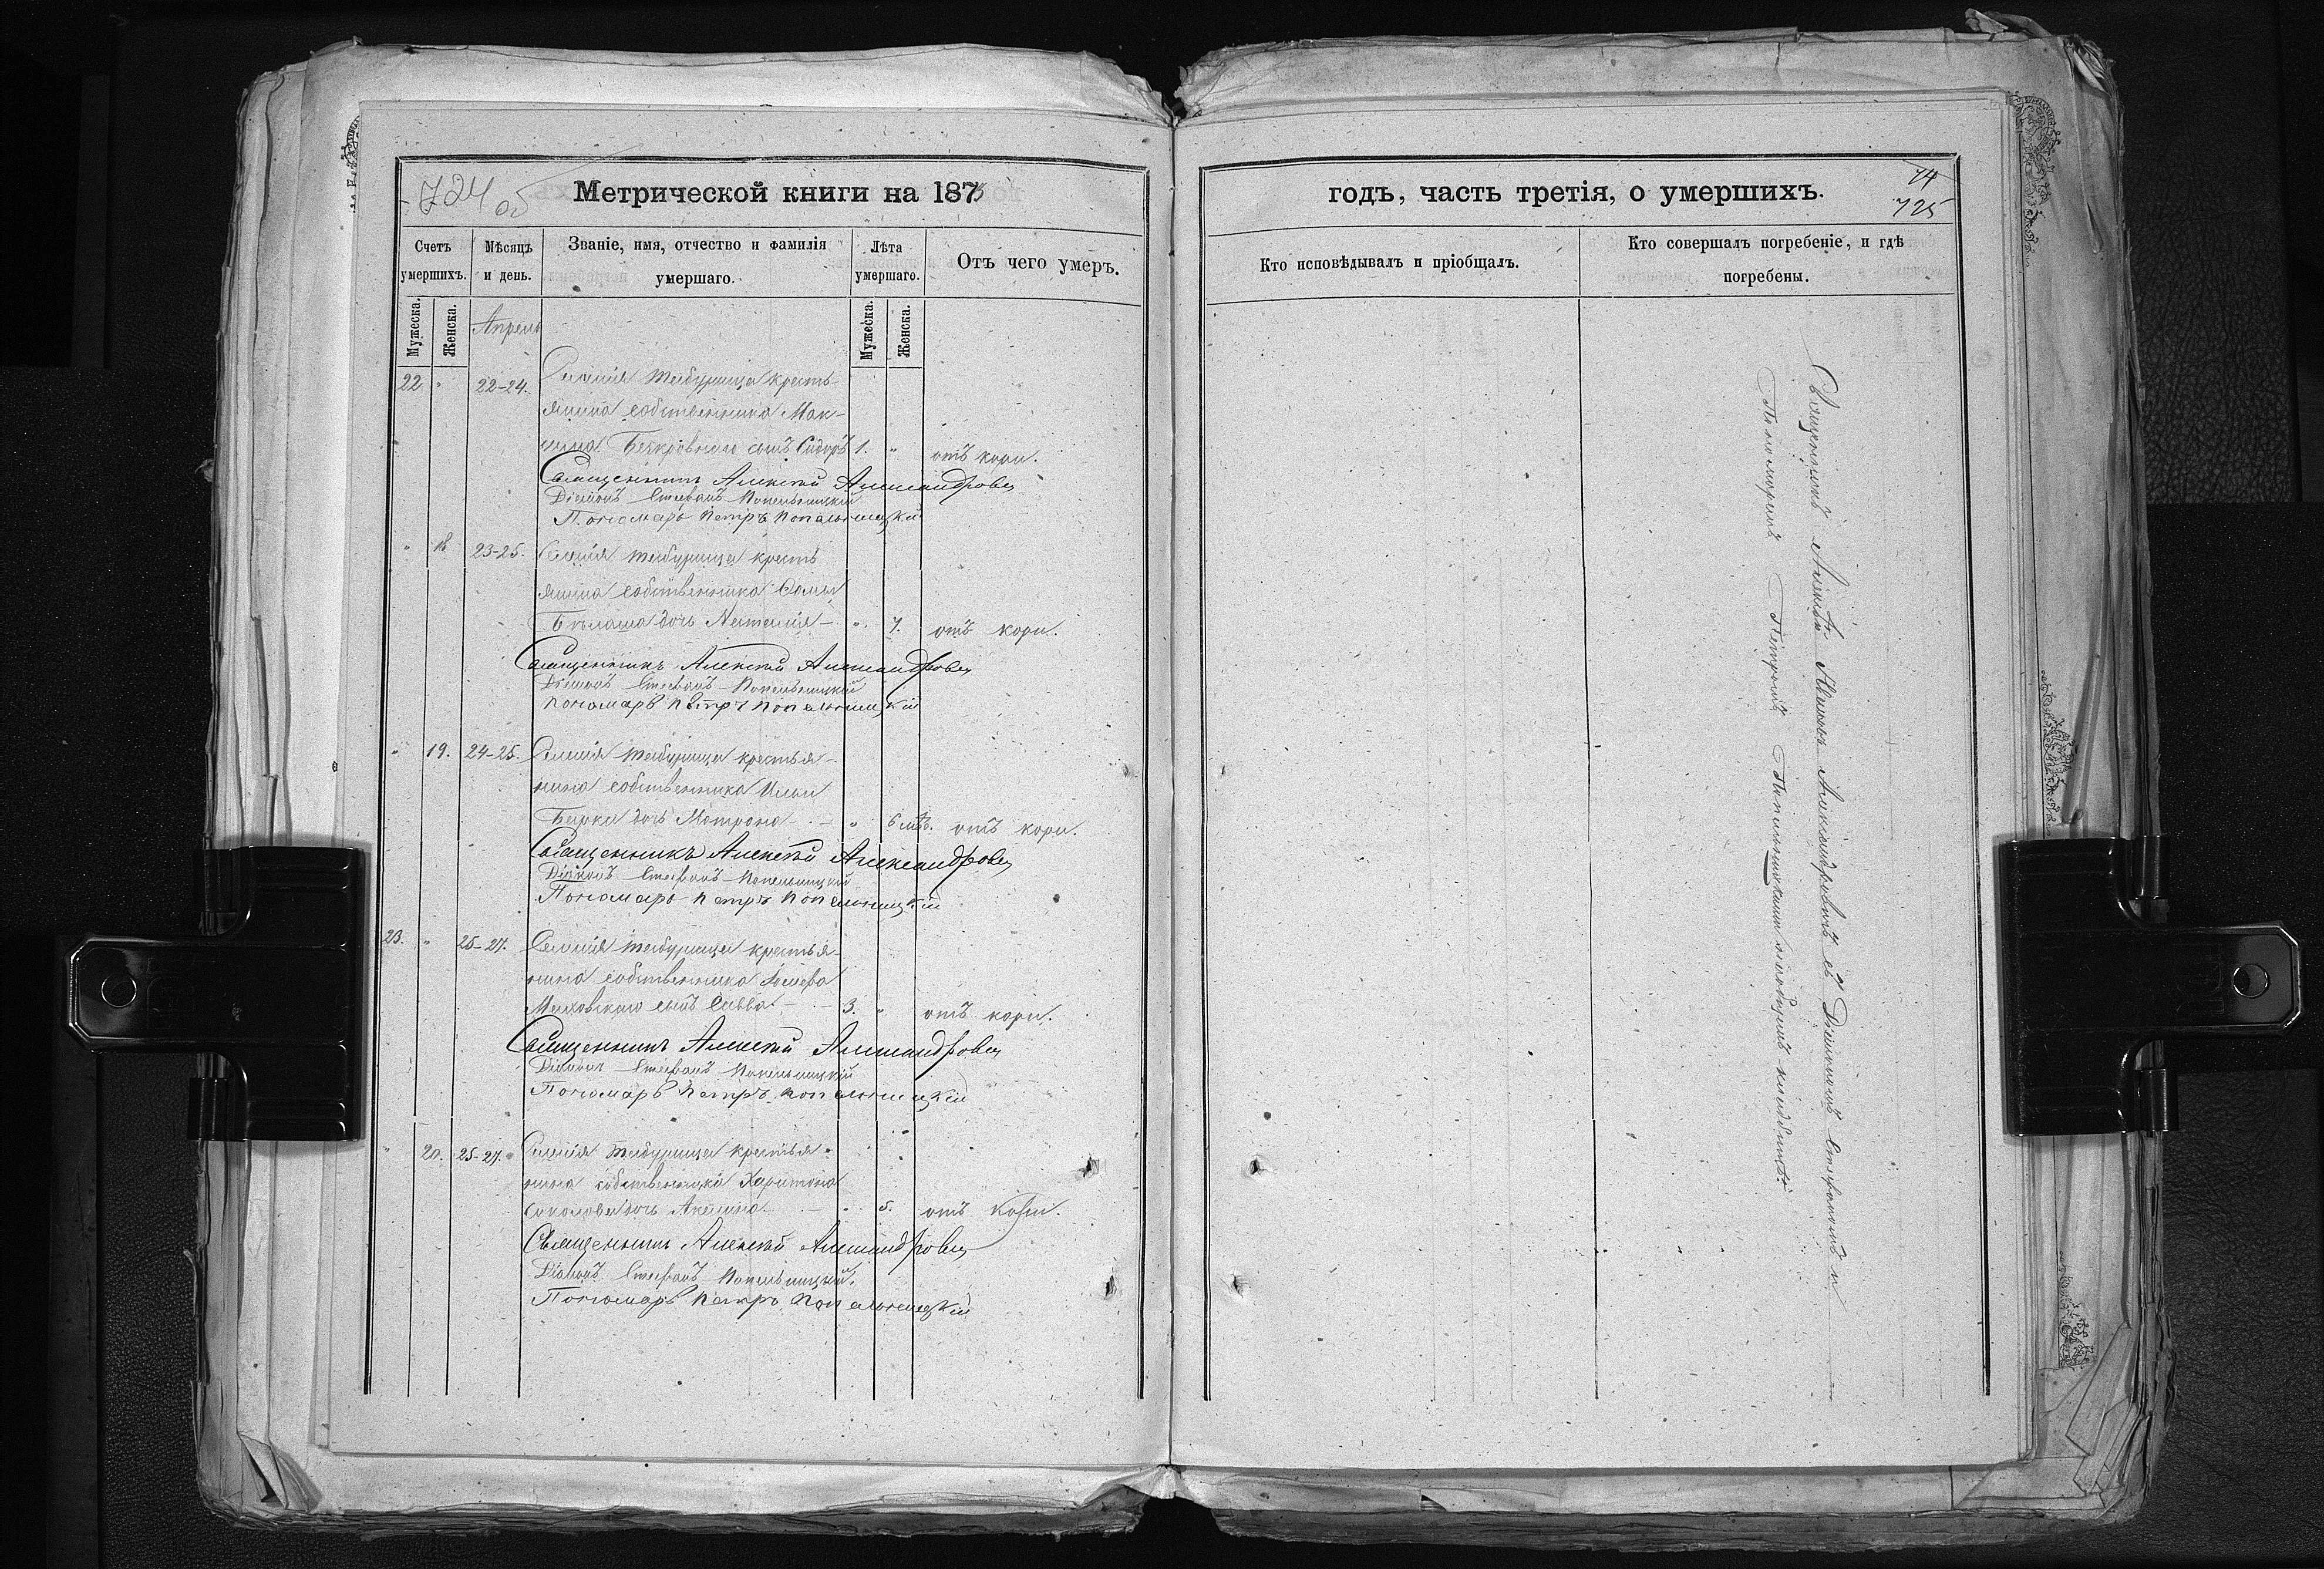 724 об
Метрической книги на 1875
Счетъ умершихъ.
Мужеска.
Женска.
Мѣсяцъ и день.
Званіе, имя, отчество и фамилія умершаго.
Лѣта умершаго.
Мужеска.
Женска.
Отъ чего умеръ.
Апрель
22 " 22-24. Селенія Тембурища кресть-
янина собственника Мак-
сима сынъ Сидоръ 1. " отъ кори.
Священникъ Алексѣй Александровъ
Діаконъ Стефанъ Копельницкій
Пономарь Петръ Копельницкій
" 18 23-25. Селенія Тембурища кресть
янина собственника Фомы
Бѣлаша дочь Наталія - " 7. отъ кори.
Священникъ Алексѣй Александровъ
Діаконъ Стефанъ Копельницкій
Пономарь Петръ Копельницкій
" 19. 24-25. Селенія Тембурища крестья-
нина собственника Ильи
дочь Матрона - " 6 отъ кори.
Священникъ Алексѣй Александровъ
Діаконъ Стефанъ Копельницкій
Пономарь Петръ Копельницкій
23. " 25-27. Селенія Тембурища крестья-
нина собственника
сынъ Савва - 3. " отъ кори.
Священникъ Алексѣй Александровъ
Діаконъ Стефанъ Копельницкій
Пономарь Петръ Копельницкій
" 20. 25-27. Селенія Тембурища крестья-
нина собственника Харитона
Соколова дочь Акилина - " 5. отъ кори.
Священникъ Алексѣй Александровъ
Діаконъ Стефанъ Копельницкій.
Пономарь Петръ Копельницкій
годъ, часть третія, о умершихъ.
74
725
Кто исповѣдывалъ и пріобщалъ.
Кто совершалъ погребеніе, и гдѣ погребены.
Священникъ Алексѣй Александровъ съ Діакономъ Стефаномъ и
Пономаремъ Петромъ Копельницкими на кладбищѣ